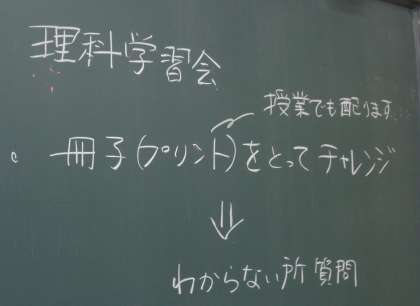 理科学習会
授業でも配ります
冊子(プリント)をとってチャレンジ
⇓
わからない所質問